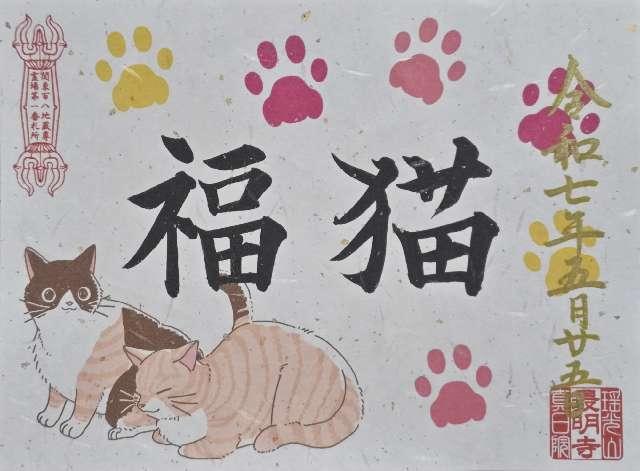 関東百八地蔵尊
霊場第一番札所
福猫
令和七年五月廿五日
瑶光山
最明寺